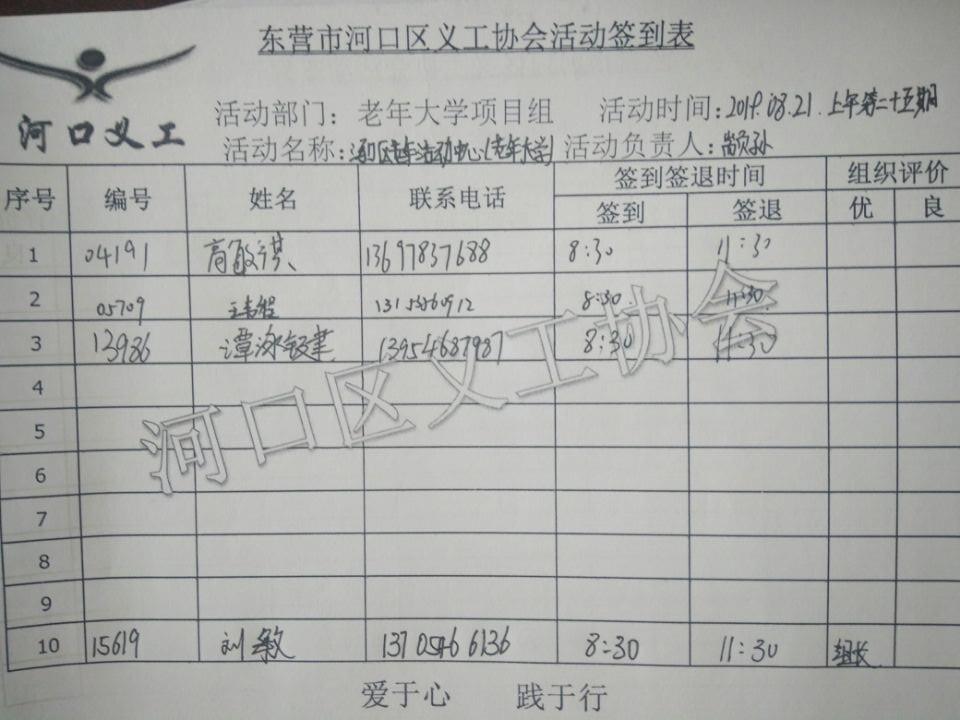 东营市河口区义工协会活动签到表
河口义工
活动部门：老年大学项目组 活动时间:2019.08.21.上午第二十五期
活动名称: 活动中心(老年大学) 活动负责人:
序号 编号 姓名 联系电话 签到签退时间 组织评价
签到 签退 优 良
1 04191 高 13697837688 8:30 11:30
2 05709 13153560912 8:30 11:30
3 13986 谭 13954687987 8:30 11:30
4
5
6
7
8
9
10 15619 刘敏 13705466136 8:30 11:30 组长
河口区义工协会
爱于心 践于行